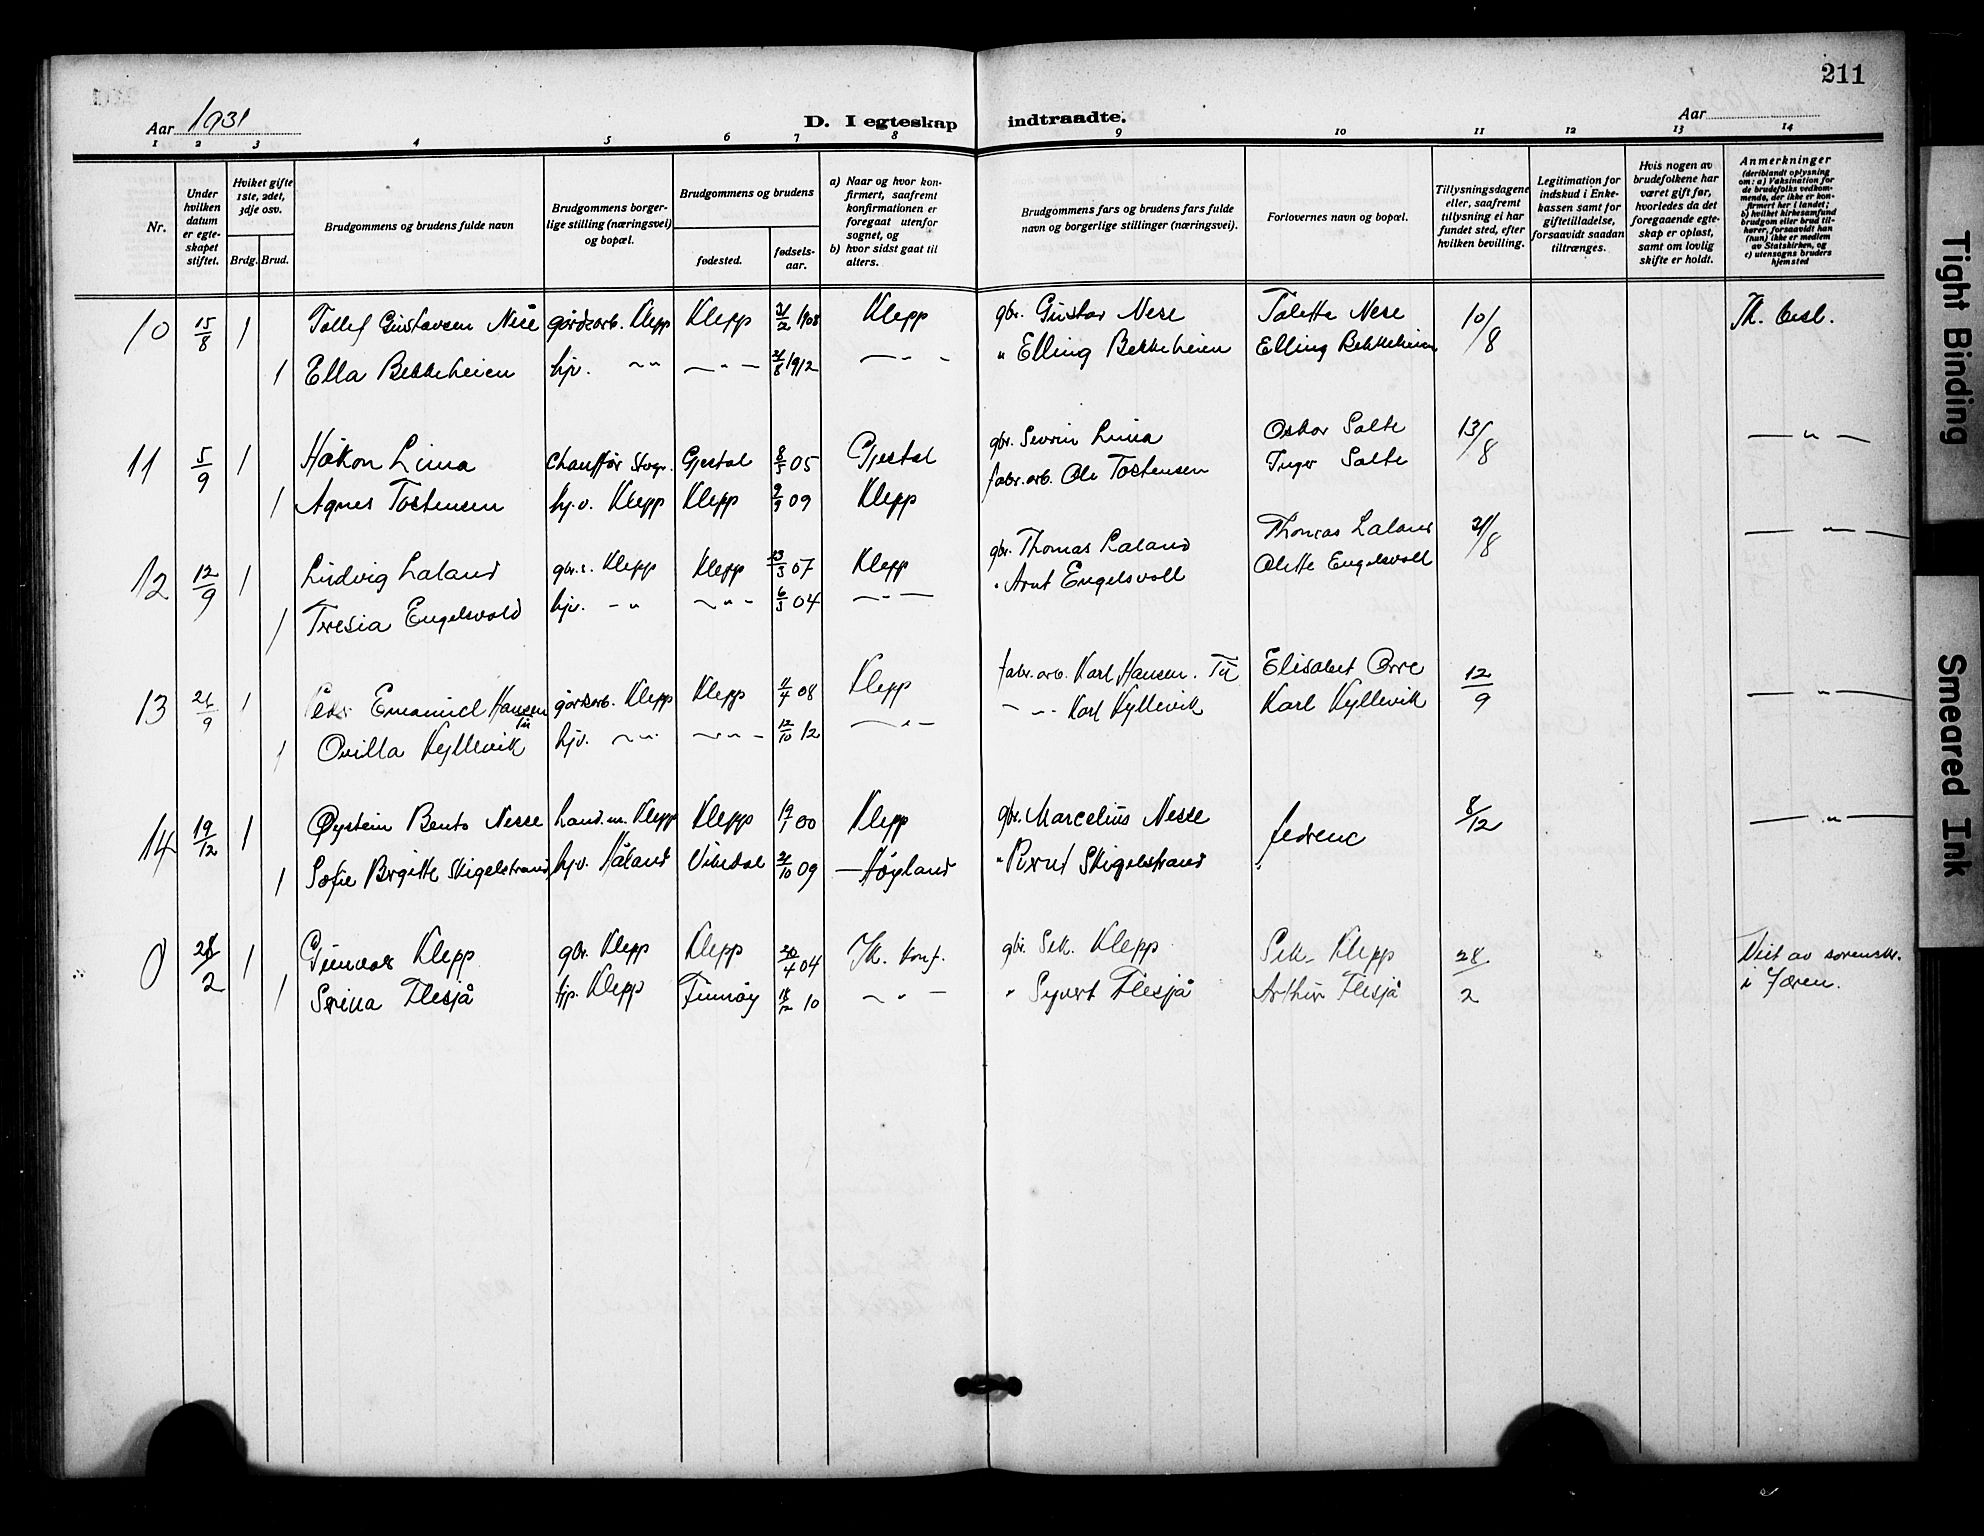 211
Aar 1931 D. I egteskap indtraadte. Aar
1 2 3 4 5 6 7 8 9 10 11 12 13 14
Nr.
Under hvilken datum er egte-skapet stiftet.
Hviket gifte 1ste, 2det, 3dje osv.
Brdg. Brud.
Brudgommens og brudens fulde navn
Brudgommens borger-lige stilling (næringsvei) og bopæl.
Brudgommens og brudens
fødested.
fødsels-aar.
a) Naar og hvor kon-firmert, saafremt konfirmationen er foregaat utenfor sognet, og
b) hvor sidst gaat til alters.
Brudgommens fars og brudens fars fulde navn og borgerlige stillinger (næringsvei).
Forlovernes navn og bopæl.
Tillysningsdagene eller, saafremt tillysning ei har fundet sted, efter hvilken bevilling.
Legitimation for indskud i Enke-kassen samt for giftetilladelse, forsaavidt saadan tiltrænges.
Hvis nogen av brudefolkene har været gift før, hvorledes da det foregaaende egte-skap er opløst, samt om lovlig skifte er holdt.
Anmerkninger (deriblandt oplysning om: a) Vaksination for de brudefolks vedkom-mende, der ikke er kon-firmert her i landet; b) hvilket kirkesamfund brudgom eller brud til-hører, forsaavidt han (hun) ikke er medlem av Statskirken, og c) utensogns bruders hjemsted
10 15/8 1 Tollef Gustavsen Nese gårdsarb. Klepp Klepp 31/2 1908 Klepp gbr. Gustav Nese Tolette Nese 10/8
1 Ella Bekkeheien hjv. — " — — " — 21/8 1912 — " — " Elling Bekkeheien Elling Bekkeheien
11 5/9 1 Håkon Lima Chauffør Gjestal 8/5 05 Gjestal gbr. Sevrin Lima Oskar Salte 13/8 — " —
1 Agnes Tostensen hj.v. Klepp Klepp 9/9 09 Klepp fabr.arb. Ole Tostensen Inger Salte
12 12/9 1 Ludvig Laland gbr.s. Klepp Klepp 13/3 07 Klepp gbr. Thomas Laland Thomas Laland 21/8 — " —
1 Tresia Engelsvold hjv. — " — " — 6/3 04 — " — " Arnt Engelsvoll Olette Engelsvoll
13 26/9 1 Peder Emanuel Hansen Tu gårdsarb. Klepp Klepp 11/4 08 Klepp fabr.arb. Karl Hansen. Tu Elisabet Orre 12/9 — " —
1 Ovilla Kyllevik hjv. — " — — " — 12/10 12 — " — — " — Karl Kyllevik Karl Kyllevik
14 19/12 1 Øystein Bento Nesse Land.m. Klepp Klepp 19/1 00 Klepp gbr. Marcelius Nesse fedrene 8/12 — " —
1 Sofie Birgitte Skigelstrand hjv. Håland Vikedal 21/10 09 — Høyland " Skigelstrand
0 28/2 1 Gunvar Klepp gbr. Klepp Klepp 20/4 04 Ik. konf. gbr. Sek. Klepp Sek. Klepp 28/2 Viet av sorenskr.
1 Serina Flesjå tjp. Klepp Finnøy 18/12 10 — " — " Syvert Flesjå Arthur Flesjå i Jæren.
Tight Binding
Smeared Ink